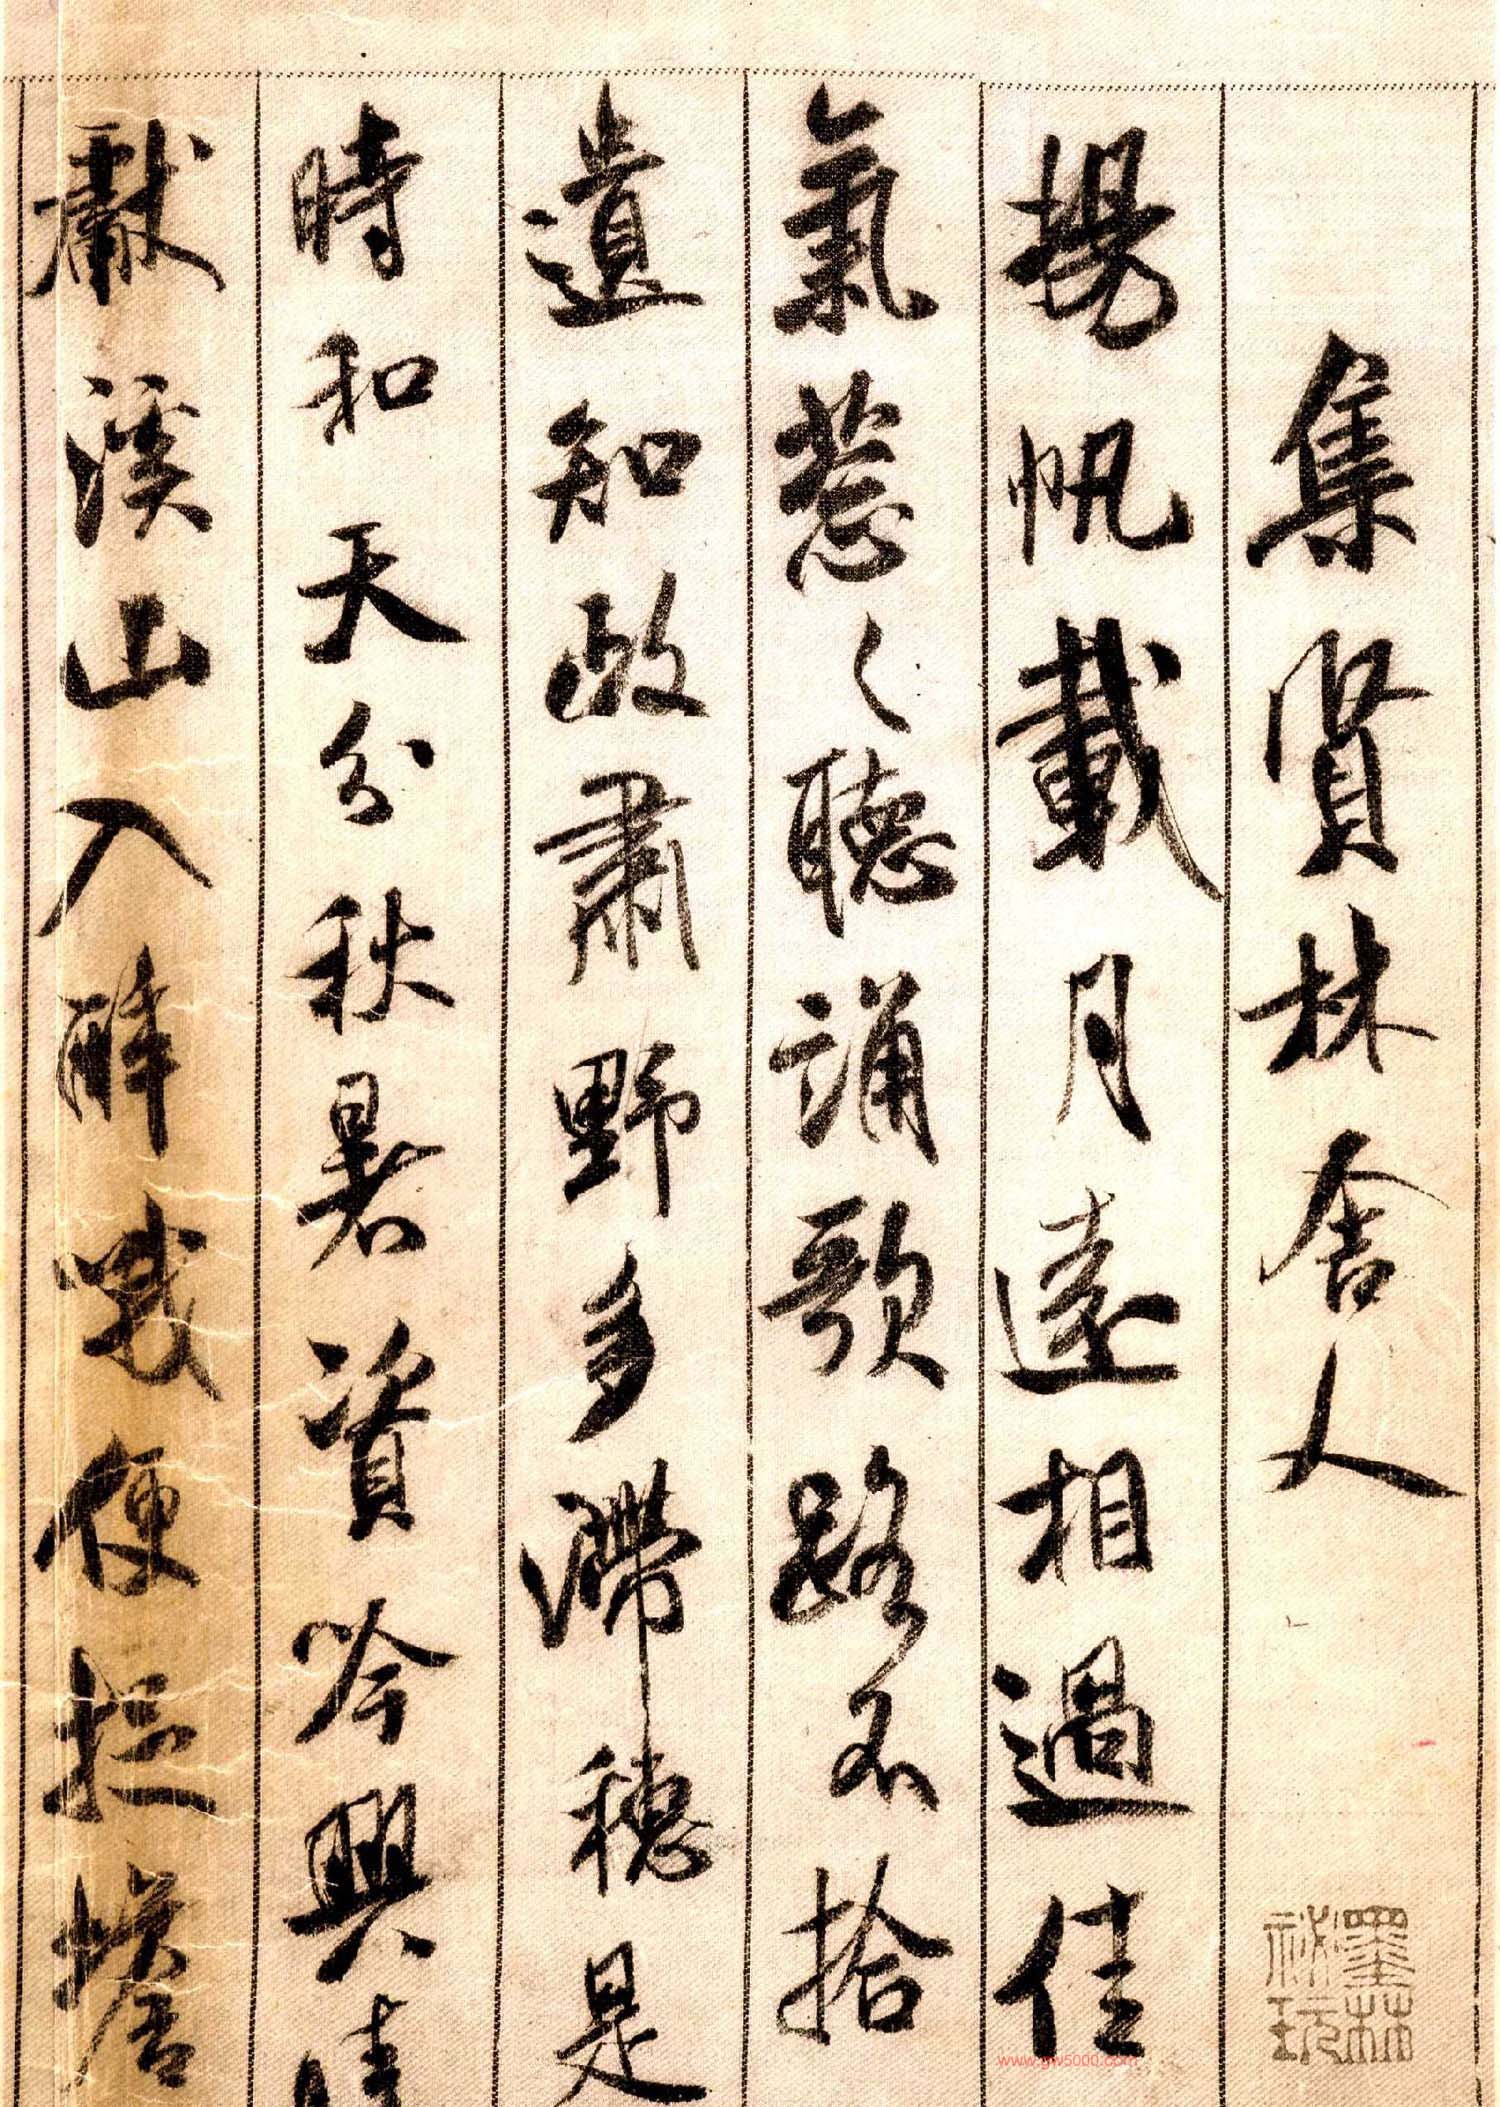 集賢林舍人
揚帆載月遠相過佳
氣葱々聽誦歌路不拾
遺知政肅野多滯穗是
時和天分秋暑資吟興晴
獻溪山入醉哦便捉蟾
墨林
祕玩
www.gw5000.com